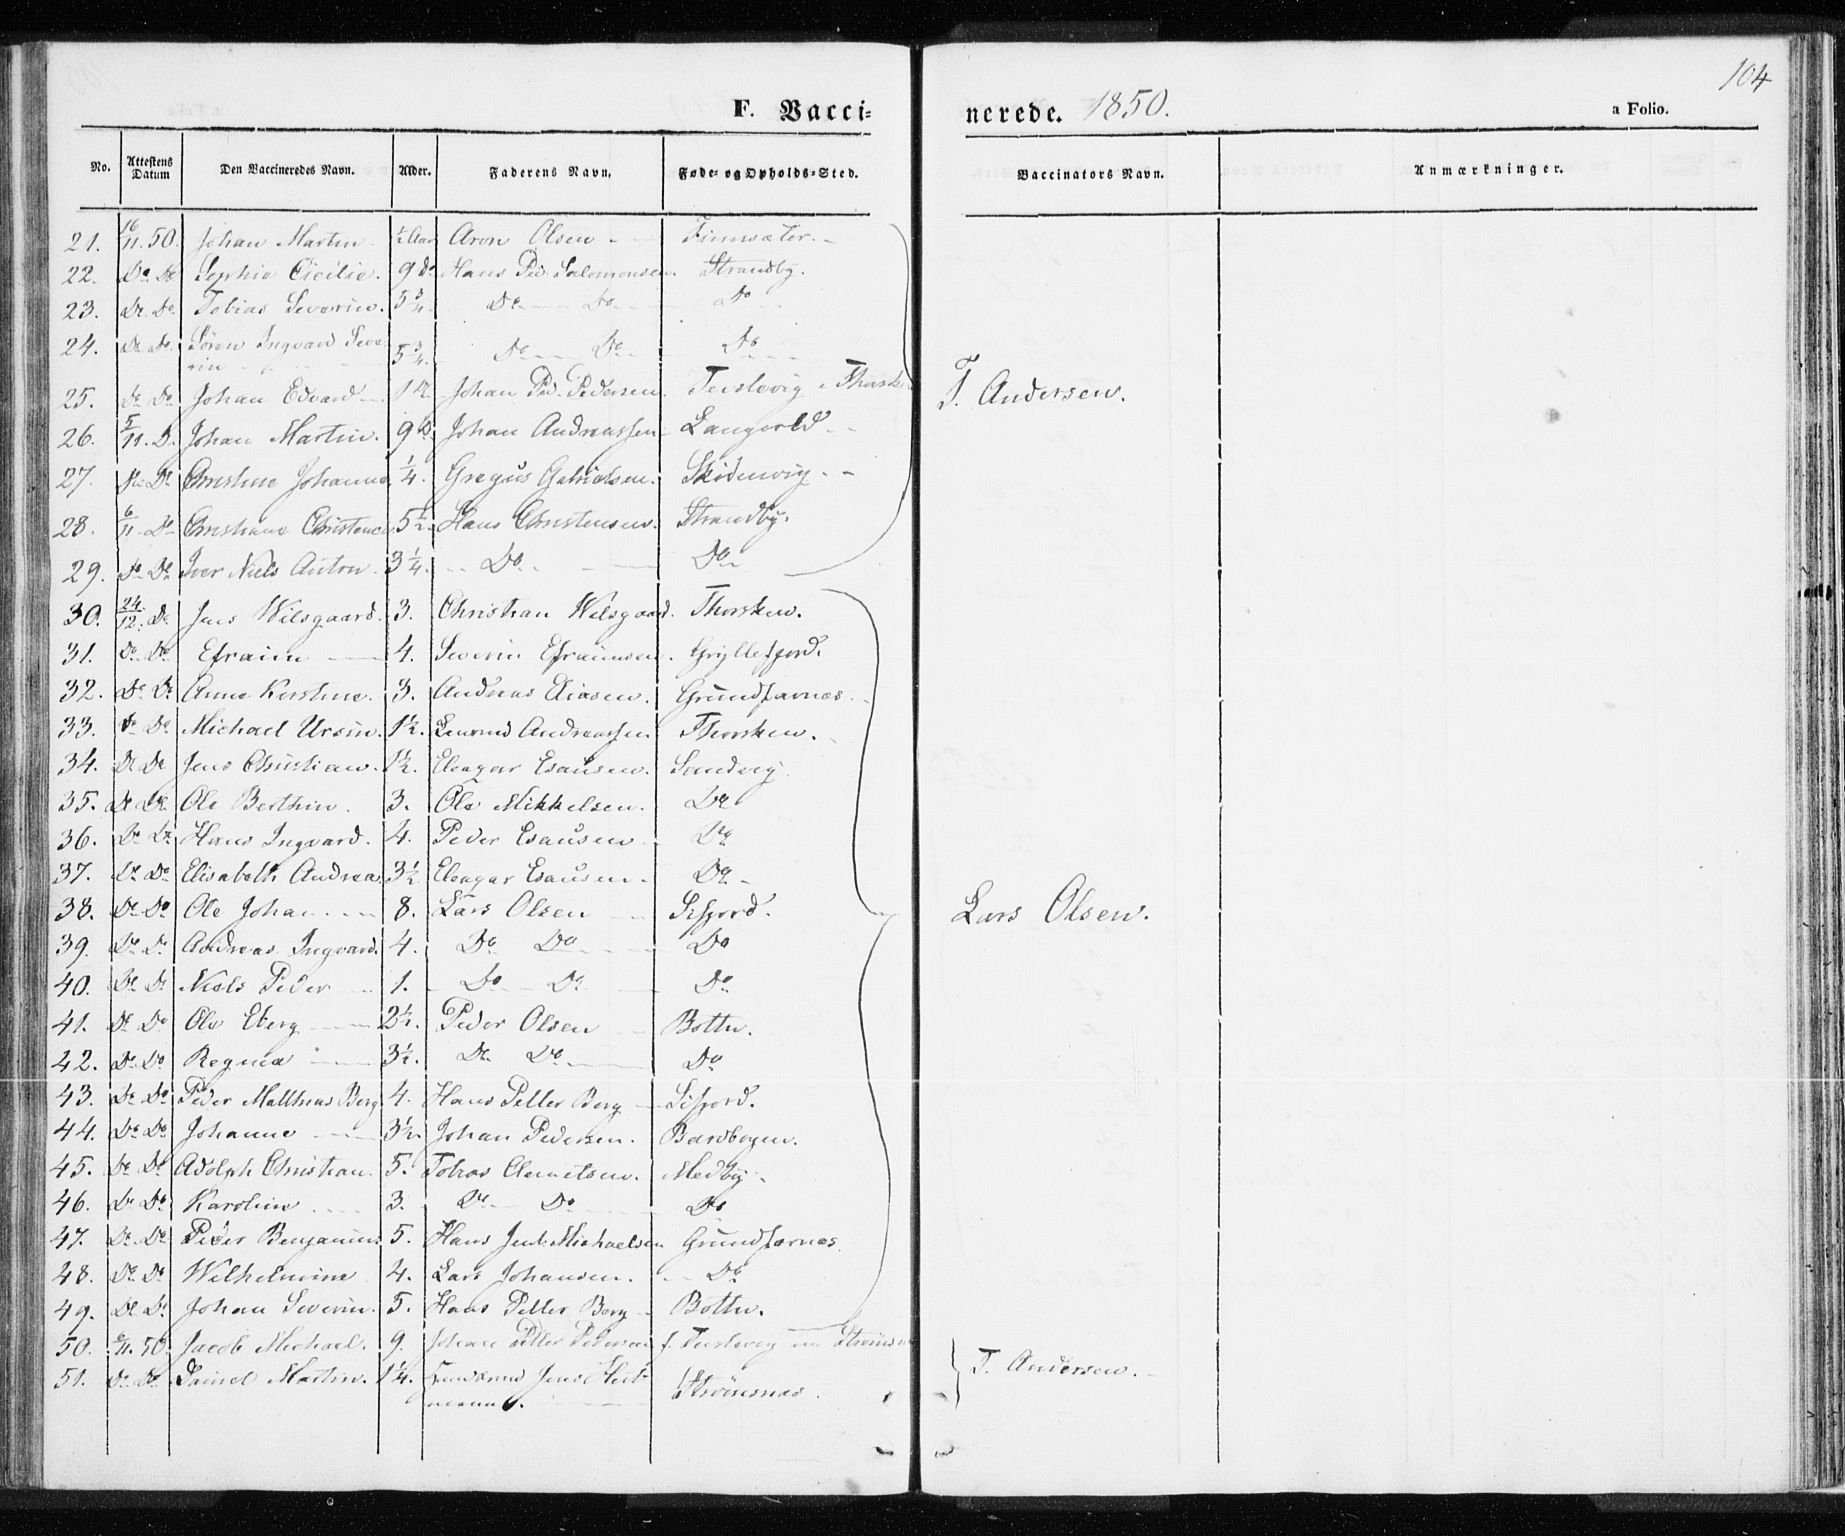 104
F. Vacci-
nerede. 1850.
a Folio.
No. Attestens Datum Den Vaccineredes Navn. Alder. Faderens Navn. Føde- og Opholds-Sted. Vaccinators Navn. Anmærkninger.
21. 16/11. 50. Johan Martin ½ Aar Aron Olsen Finnsæter.
22. Do Do Sophie Cicilie. 9 do Hans Ped. Salomonsen. Strandby.
23. Do Do Tobias Severin. 5¾ Do Do Do
24. Do Do Sören Ingvard Seve-
rin 5¾. Do Do Do
25. Do Do Johan Edvard 1½ Johan Ped. Pedersen. Teistevig Thorsken T. Andersen.
26. 5/11. D. Johan Martin. 9 Johan Andreassen
27. Do Do Christine Johanne ¼. Gregus Gabrielsen.
28. 6/11 Do Christiane 5½. Hans Christensen. Strandby.
29. Do Do Iver Niels Anton 3¼. Do Do
30. 24/12. Do Jens Wilsgaard. 3. Christian Wilsgaard. Thorsken.
31. Do Do Efraim 4. Severin Efraimsen. Gryllefjord.
32. Do Do Anne Kirstine. 3. Andreas Eliasen. Grundfarnes.
33. Do Do Michael Ursin. 1½. Andreassen Thorsken.
34. Do Do Jens Christian. 1½. Eleazar Esausen. Sandvig
35. Do Do Ole Berthin. 3. Ole Mikkelsen. Do
36. Do Do Hans Ingvard. 4. Peder Esausen Do
37. Do Do Elisabeth Andrea 3½ Eleazar Esausen. Do
38. Do Do Ole Johan 8. Lars Olsen Sifjord. Lars Olsen.
39. Do Do Andreas Ingvard. 4. Do Do Do
40. Do Do Niels Peder 1. Do Do Do
41. Do Do Ole Eberg 2½. Peder Olsen Botten.
42. Do Do Regina 3½. Do Do Do
43. Do Do Peder Matthias Berg 4. Hans Petter Berg Sifjord.
44. Do Do Johanne 3½. Johan Pedersen.
45. Do Do Adolph Christian. 5. Tobias Clemetsen. Medby.
46. Do Do Karoline 3. Do Do Do
47. Do Do Peder Benjamin. 5. Hans Michaelsen Grundfarnes.
48. Do Do Wilhelmine 4. Lars Johansen. Do
49. Do Do Johan Severin. 5. Hans Petter Berg Botten.
50. 6/11. 50. Jacob Michael. 9. Johan Petter Pedersen f. Teistevig
51. Do Do Daniel Martin. 1¼. Jens
Strömsnes. T. Andersen.